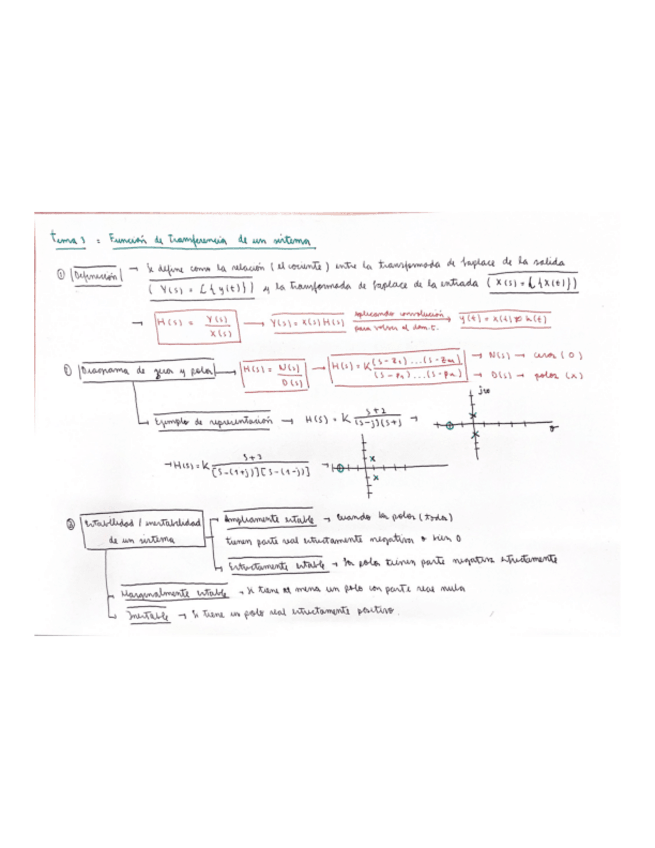 Tema 3 = Función de Transferencia de un sistema
① Definición → Se define como la relación (el cociente) entre la transformada de Laplace de la salida
(Y(s) = L{y(t)}) y la transformada de Laplace de la entrada (X(s) = L{X(t)})
→ H(s) = Y(s)/X(s) → Y(s) = X(s)H(s) aplicando convolución para volver al dom. t. → y(t) = x(t) * h(t)
② Diagrama de ceros y polos → H(s) = N(s)/D(s) → H(s) = K (s-z₁)...(s-zₘ)/(s-p₁)...(s-pₙ) → N(s) → ceros (O)
→ D(s) → polos (x)
jω
Ejemplo de representación → H(s) = K s+2/(s-j)(s+j) →
σ
→ H(s) = K s+2/[s-(1+j)][s-(1-j)] →
③ Estabilidad / inestabilidad de un sistema
Ampliamente estable → Cuando los polos (todos)
tienen parte real estrictamente negativa o bien 0
Estrictamente estable → Los polos tienen parte negativa estrictamente
Marginalmente estable → Si tiene al menos un polo con parte real nula
Inestable → Si tiene un polo real estrictamente positivo.